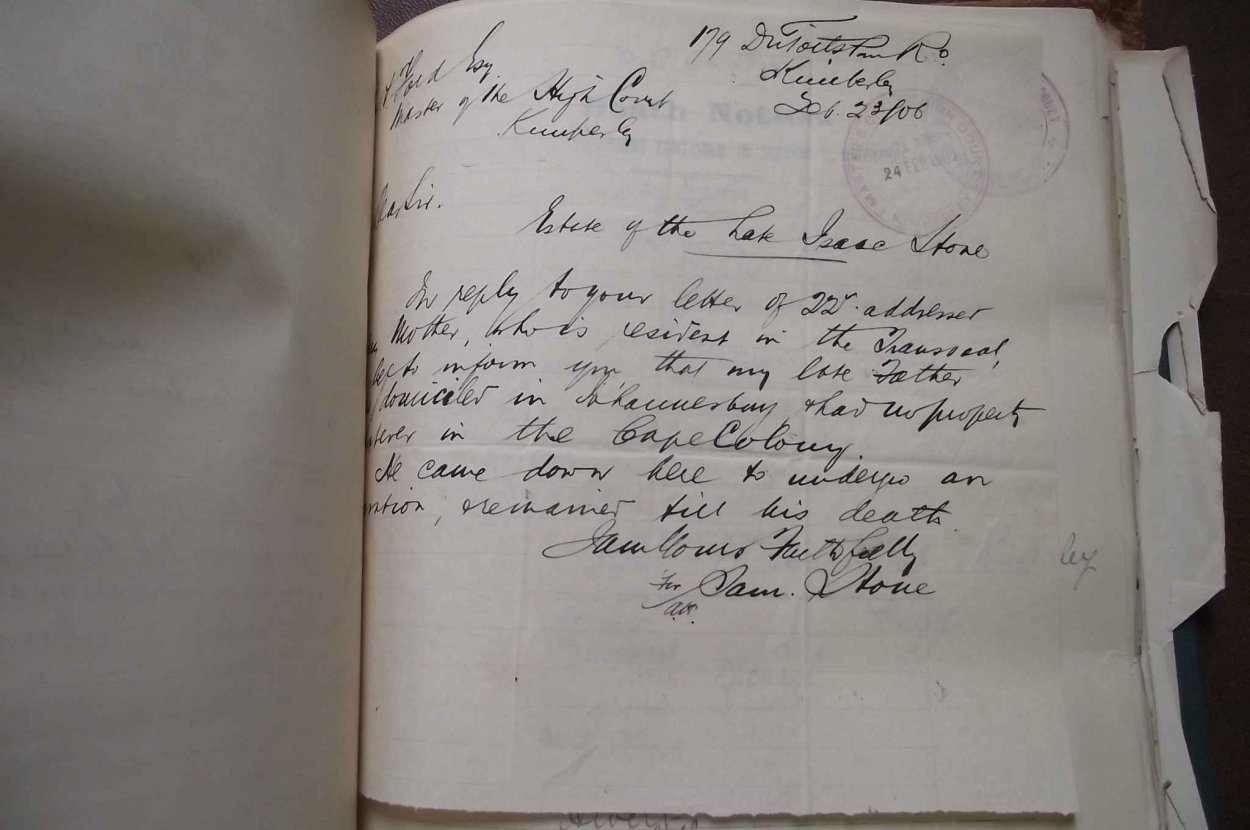 179 DuToitspan Rd
Kimberley
Feb. 23/06
Ford Esq
Master of the High Court
Kimberley
24 FEB
Dear Sir.
Estate of the Late Isaac Stone
In reply to your letter of 22d. addressed
Mother, who is resident in the Transvaal,
to inform you that my late Father
domiciled in Johannesburg, & had no property
in the Cape Colony.
He came down here to undergo an
, & remained till his death.
I am Yours Faithfully
For Sam. Stone